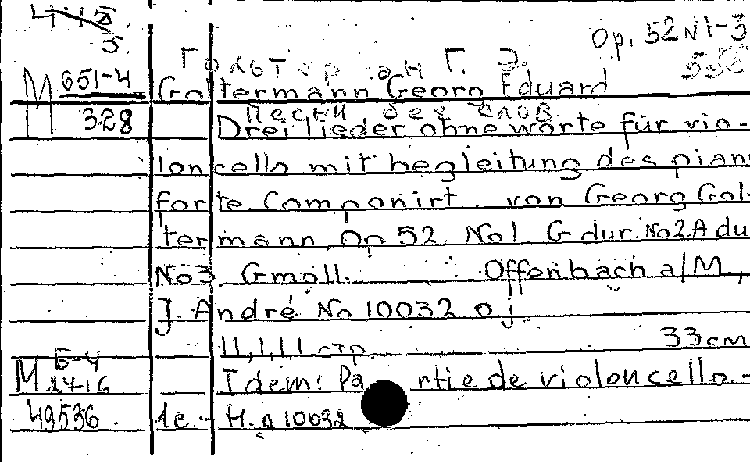 Op. 52 N1-3
5.
Гольтерман Г. Э.
M 651-4 Goltermann Georg Eduard
328 Песни без слов
Drei lieder ohne worte für vio-
loncello mit begleitung des piano
forte Componirt von Georg Gol-
termann Op 52 No1 G dur No2 A du
No3 G moll. Offenbach a/M,
J. André No 10032 oj
11,1,11 стр 33 см
M Idem: Pa rtie de violoncello.-
49536 1e.- 10032